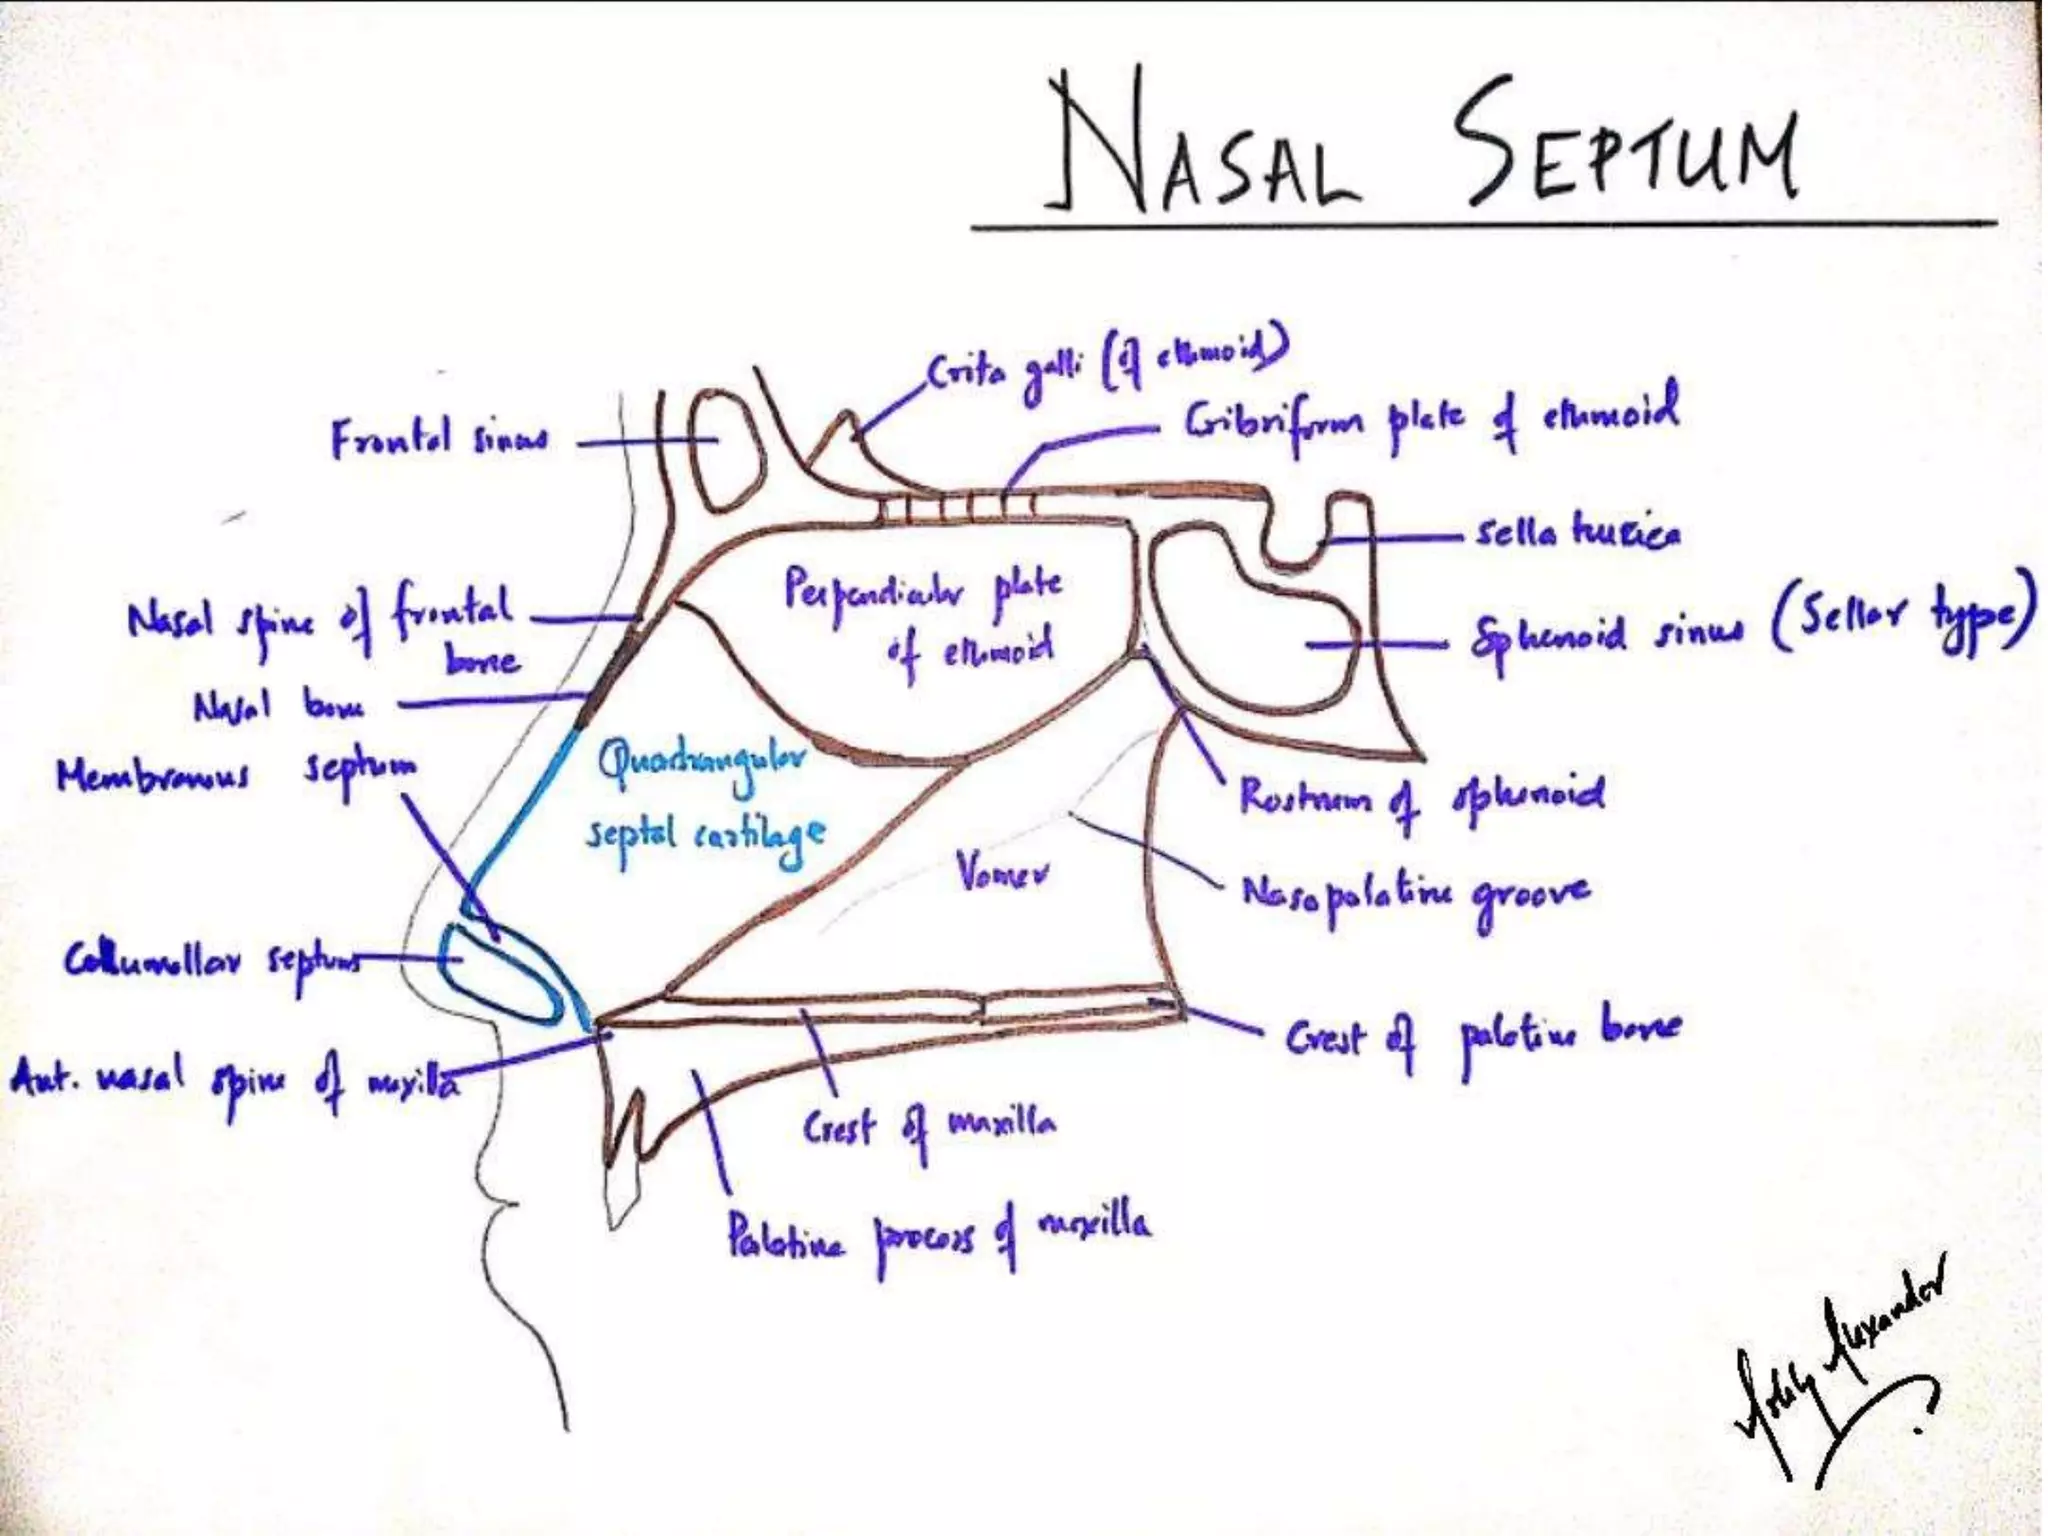 NASAL SEPTUM
Crita galli (of ethmoid)
Cribriform plate of ethmoid
Frontal sinus
Sella tursica
Perpendicular plate
of ethmoid
Nasal spine of frontal
bone
Sphenoid sinus (Sellar type)
Nasal bone
Membranous septum
Quadrangular
septal cartilage
Rostrum of sphenoid
Vomer
Nasopalatine groove
Collumellar septum
Crest of palatine bone
Ant. nasal spine of maxilla
Crest of maxilla
Palatine process of maxilla
Alexander